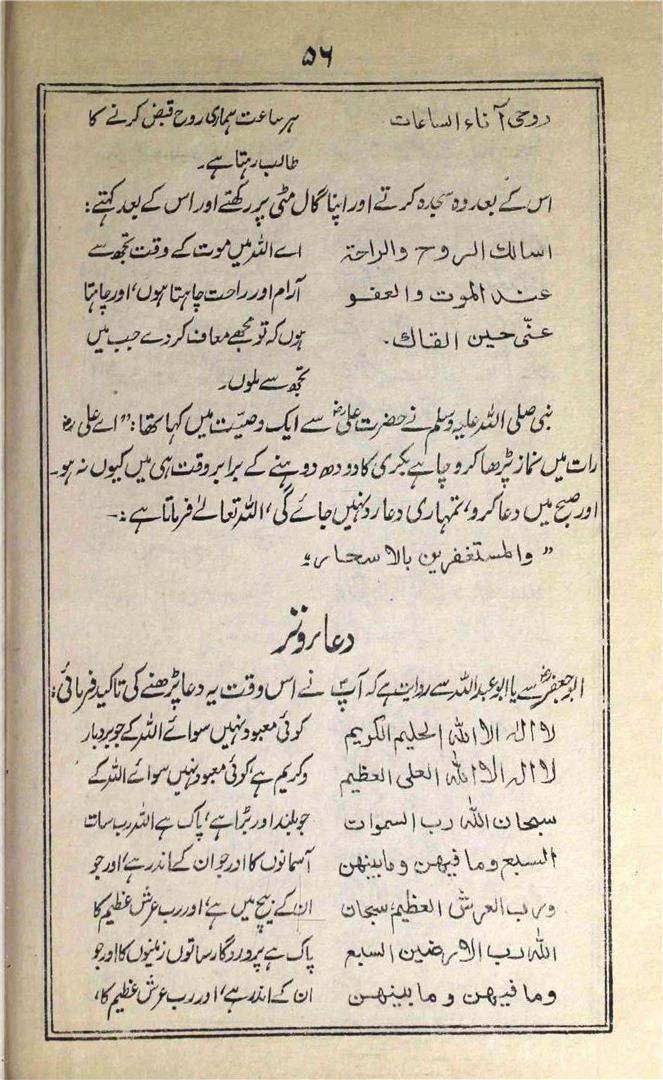 ۵۶
روحی آناء الساعات ہر ساعت ہماری روح قبض کرنے کا
طالب رہتا ہے۔
اس کے بعد وہ سجدہ کرتے اور اپنا گال مٹی پر رکھتے اور اس کے بعد کہتے:
اسالک الروح والراحة اے اللہ میں موت کے وقت تجھ سے
عند الموت والعفو آرام اور راحت چاہتا ہوں، اور چاہتا
عنّی حین القاک۔ ہوں کہ تو مجھے معاف کر دے جب میں
تجھ سے ملوں۔
نبی صلی اللہ علیہ وسلم نے حضرت علیؓ سے ایک وصیّت میں کہا تھا: "اے علیؓ
رات میں نماز پڑھا کرو چاہے بکری کا دودھ دوہنے کے برابر وقت ہی میں کیوں نہ ہو۔
اور صبح میں دعا کرو، تمہاری دعا رد نہیں جائے گی، اللہ تعالےٰ فرماتا ہے:۔
"والمستغفرین بالاسحار"
دعا روتر
ابو جعفرؓ سے یا ابو عبد اللہ سے روایت ہے کہ آپؐ نے اس وقت یہ دعا پڑھنے کی تاکید فرمائی:
لا الہ الا اللہ الحلیم الکریم کوئی معبود نہیں سوائے اللہ کے جو بردبار
لا الہ الا اللہ العلی العظیم وکریم ہے، کوئی معبود نہیں سوائے اللہ کے
سبحان اللہ رب السموات جو بلند اور بڑا ہے، پاک ہے اللہ رب سات
السبع وما فیہن وما بینہن آسمانوں کا اور جو ان کے اندر ہے، اور جو
ورب العرش العظیم، سبحان ان کے بیچ میں ہے، اور رب عرش عظیم کا
اللہ رب الارضین السبع پاک ہے پروردگار ساتوں زمینوں کا اور جو
وما فیہن وما بینہن ان کے اندر ہے، اور رب عرش عظیم کا،